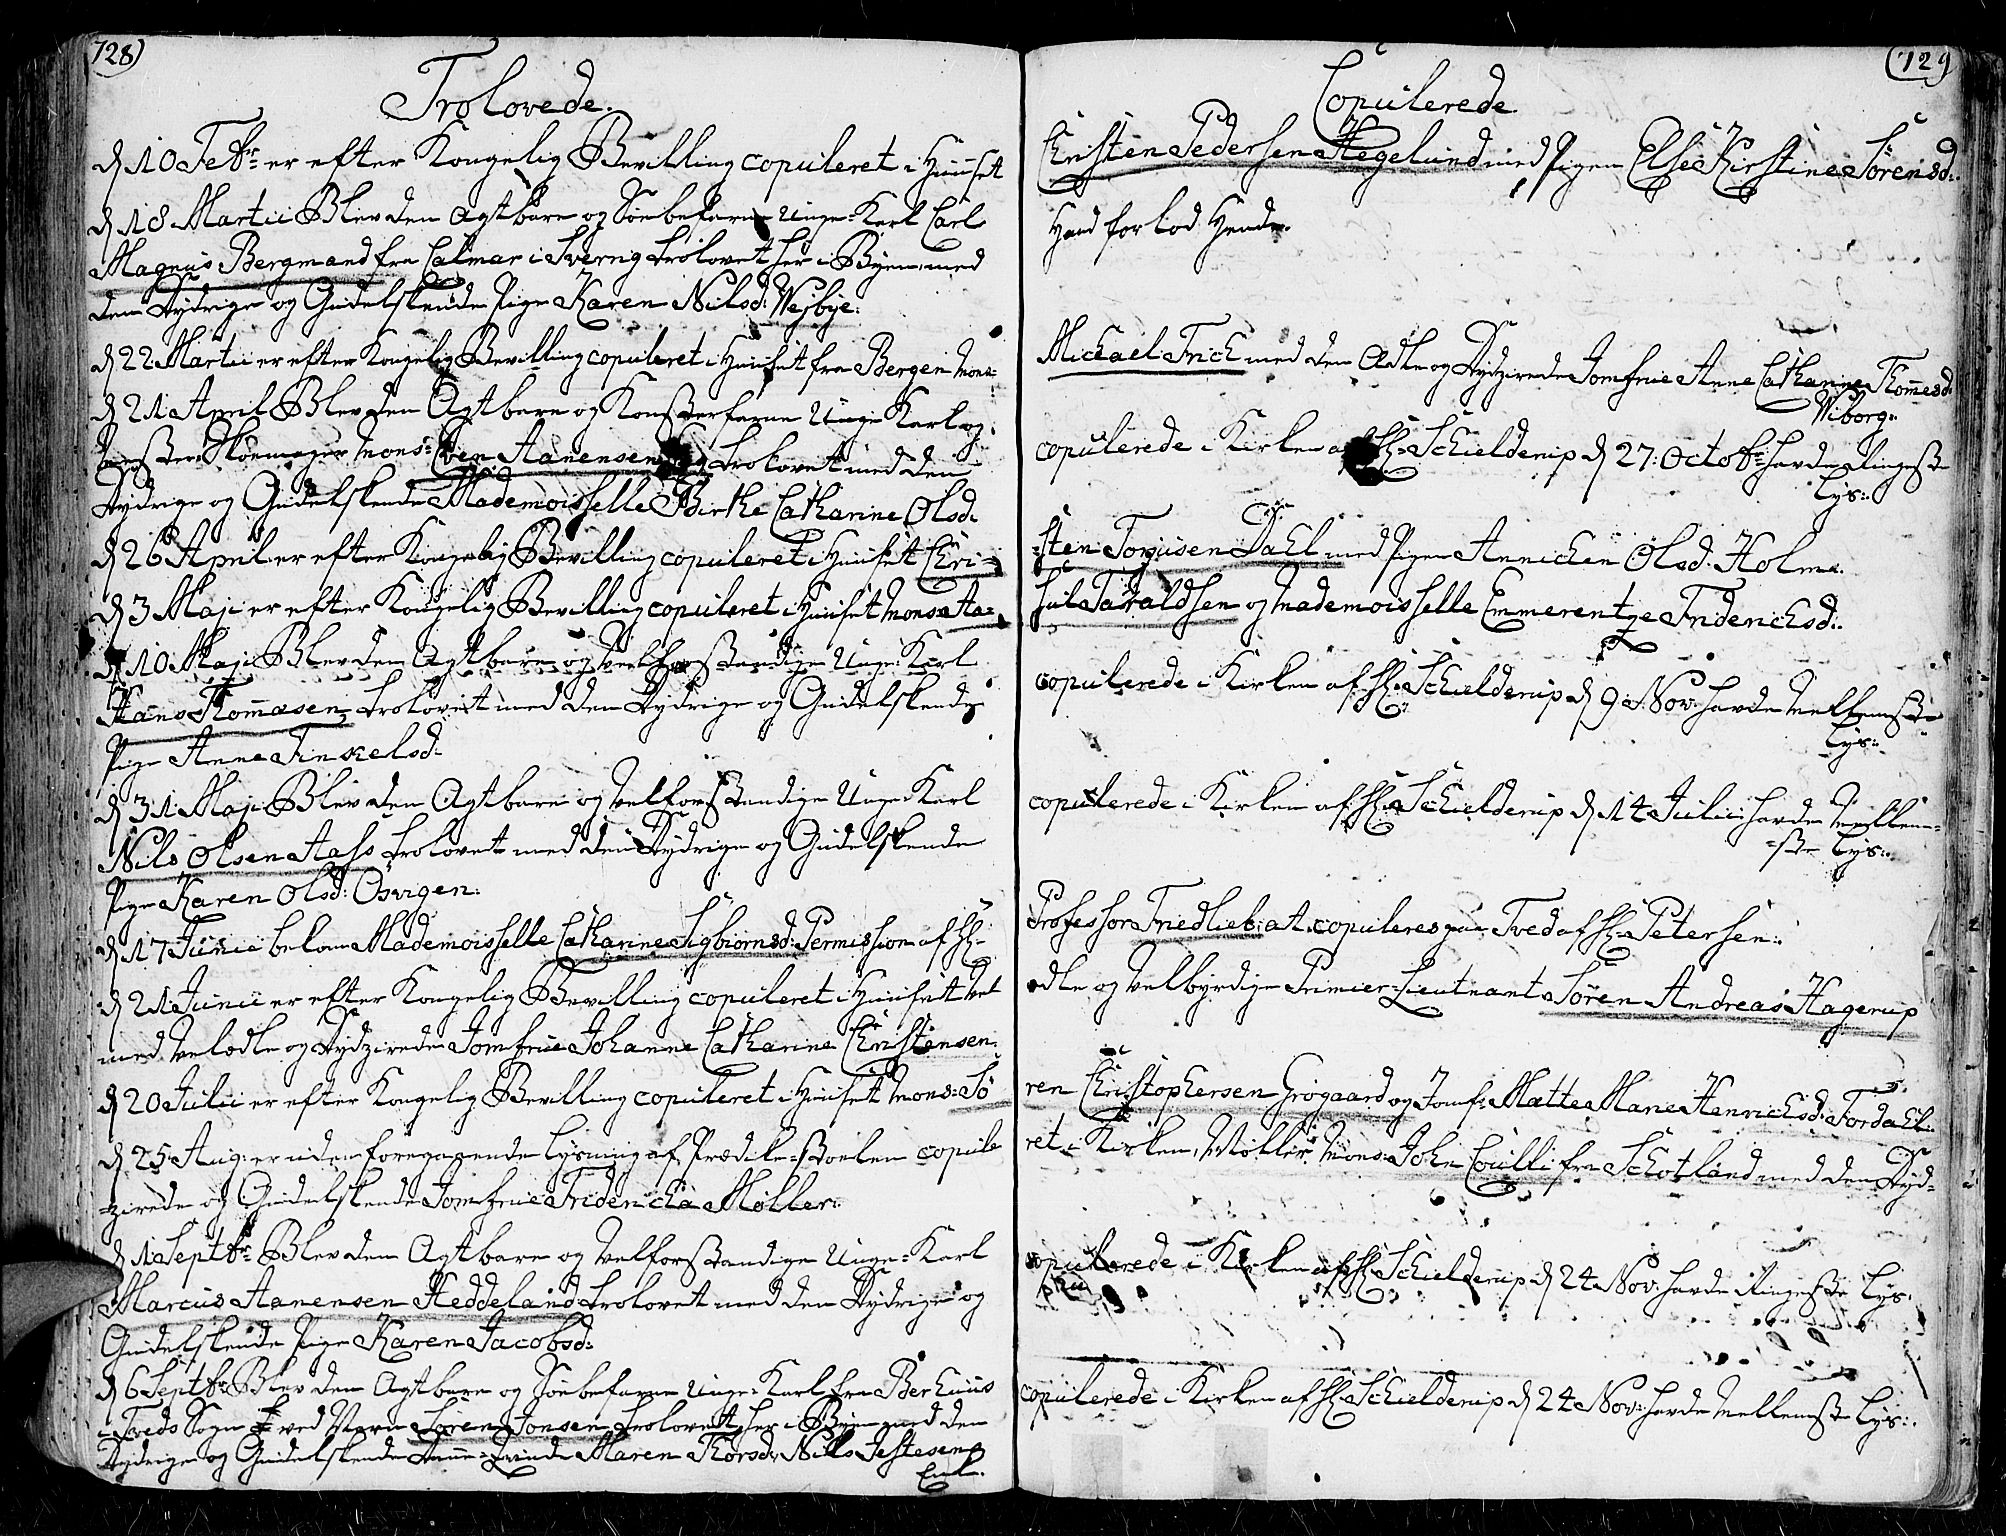 728)
Trolovede.
d 10 Febr: er efter Kongelig Bevilling copuleret i Huuset
d 18 Martii Blev den Agtbare og Søebefarne unge Karl Carl
Magnus Bergmand fra Calmar i Sverrig trolovet her i Byen med
den Dydrige og Gudelskende Pige Karen Nilsd: Wesbye:
d 22 Martii er efter Kongelig Bevilling copuleret i Huuset fra Bergen Mons:
d 21 April Blev den Agtbare og Konsterfarne Unge Karl og
Skoemager Mons: Even Aanensen trolovet med den
Dydrige og Gudelskende Mademoisselle Birthe Catharine Olsd:
d 26 April er efter Kongelig Bevilling copuleret i Huuset Chri-
d 3 Maji er efter Kongelig Bevilling copuleret i Huuset Mons: Aa-
d 10 Maji Blev den Agtbare og Velforstandige Unge Karl
Hans Thommesen trolovet med den Dydrige og Gudelskende
Pige Anne Tinkelsd:
d 31 Maji Blev den Agtbare og Velforstandige Unge Karl
Nils Olsen Aass trolovet med den Dydrige og Gudelskende
Pige Karen Olsd: Osvigen:
d 17 Junii bekom Mademoisselle Catharine Sigbiørnsd: Permission af Hr:
d 21 Junii er efter Kongelig Bevilling copuleret i Huuset Vel
med Velædle og Dydzirede Jomfrue Johanne Catharine Christensen:
d 20 Julii er efter Kongelig Bevilling copuleret i Huuset Mons: Sø
d 25 Aug: er uden foregaaende Lysning af Prædike-stoelen copule
-zirede og Gudelskende Jomfrue Friderica Møller:
d 1 Septbr: Blev den Agtbare og Velforstandige Unge-Karl
Marcus Aanensen Heddeland trolovet med den Dydrige og
Gudelskende Pige Karen Jacobsd:
d 6 Septbr: Blev den Agtbare og Søebefarne Unge-Karl fra Berhuus
i Treds Sogn ved Søren Jonsen trolovet her i Byen med den
Dydrige og Gudelskende Maren Thorsd: Nils Jestesens
Enk.
729
Copulerede
Christen Pedersen Hegelund med Pigen Else Kirstine Sørensd:
Hand forlod Hende.
Michael Frich med den Ædle og Dydzirede Jomfrue Anne Catharine Thomesd:
Wiborg:
copulerede i Kirken af Hr: Schielderup d 27 Octobr: havde Ringeste
Lys:
-sten Toruusen Dahl med Pigen Annichen Olsd: Holm:
sul Taraldsen og Mademoisselle Emmerentze Friderichsd:
copulerede i Kirken af Hr: Schielderup d 9 Nov: havde Mellemste
Lys:
copulerede i Kirken af Hr: Schielderup d 14 Julii havde Mellem-
-ste Lys:
Professor Friedlieb at copuleres paa Tved af Hr: Petersen:
ædle og Velbyrdige Premier-Lieutnant Søren Andreas Hagerup
ren Christophersen Grogaard og Jomf: Mætte Marie Henrichsd: Fordahl:
ret i Kirken, Møller Mons: John Coulli fra Schotland med den Dyd-
copulerede i Kirken af Hr: Schielderup d 24 Nov: havde Ringeste Lys:
copulerede i Kirken af Hr: Schielderup d 24 Nov: havde Mellemste Lys: